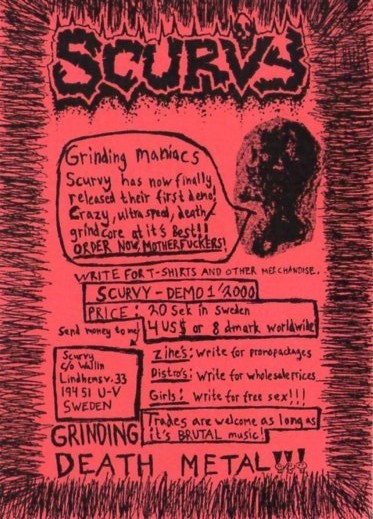 SCURVY
Grinding maniacs
Scurvy has now finally
released their first demo!
Crazy, ultra speed, death/
grindcore at it's Best!!
ORDER NOW, MOTHERFUCKERS!
WRITE FOR T-SHIRTS AND OTHER MERCHANDISE.
SCURVY - DEMO 1/2000
PRICE: 20 Sek in Sweden
4 US$ or 8 dmark worldwide
Send money to me:
Scurvy
c/o Wallin
Lindhemsv.33
194 51 U-V
SWEDEN
Zine's: write for promopackages
Distro's: write for wholesaleprices
Girls: write for free sex!!!
Trades are welcome as long as
it's BRUTAL music!
GRINDING
DEATH METAL!!!